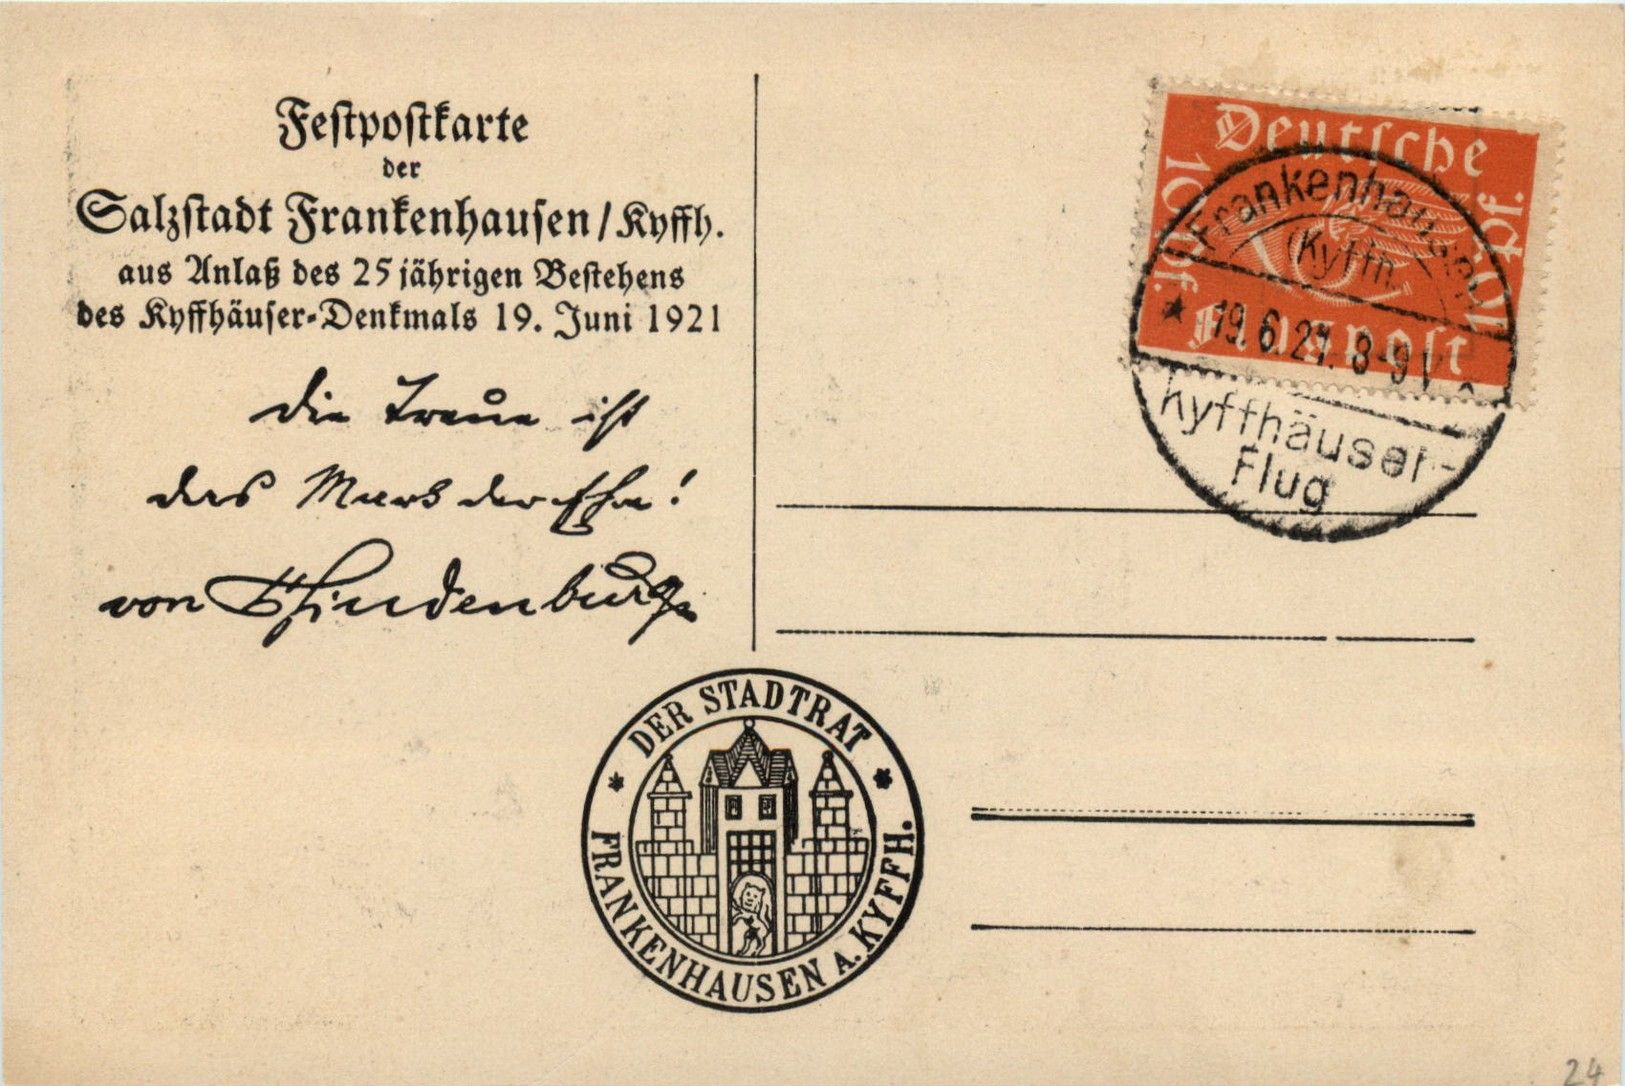 Festpostkarte
der
Salzstadt Frankenhausen / Kyffh.
aus Anlaß des 25 jährigen Bestehens
des Kyffhäuser-Denkmals 19. Juni 1921
Die Treue ist
das Mark der Ehre!
von Hindenburg
Deutsche
10 Pf.
10 Pf.
Flugpost
Frankenhausen
(Kyffh.
* 19.6.21. 8-9 V *
Kyffhäuser-
Flug
* DER STADTRAT *
FRANKENHAUSEN A. KYFFH.
24